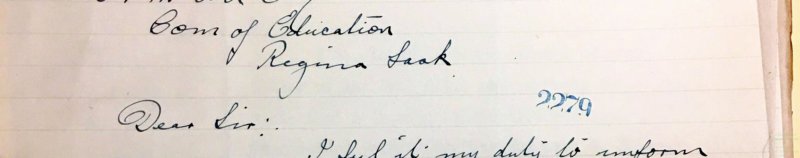 Com of Education
Regina Sask.
2279
Dear Sir:
I feel it my duty to inform